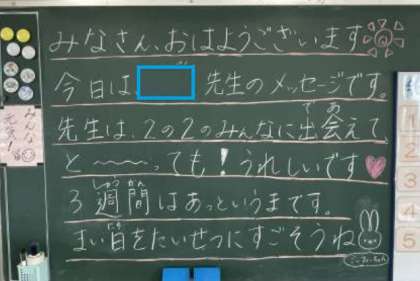 みなさん、おはようございます
今日は、 先生のメッセージです。
先生は、2の2のみんなに出会えて
と〜〜〜っても！うれしいです
3週間はあっというまです。
まい日をたいせつにすごそうね
みんな元気!
1
2
3
4
5